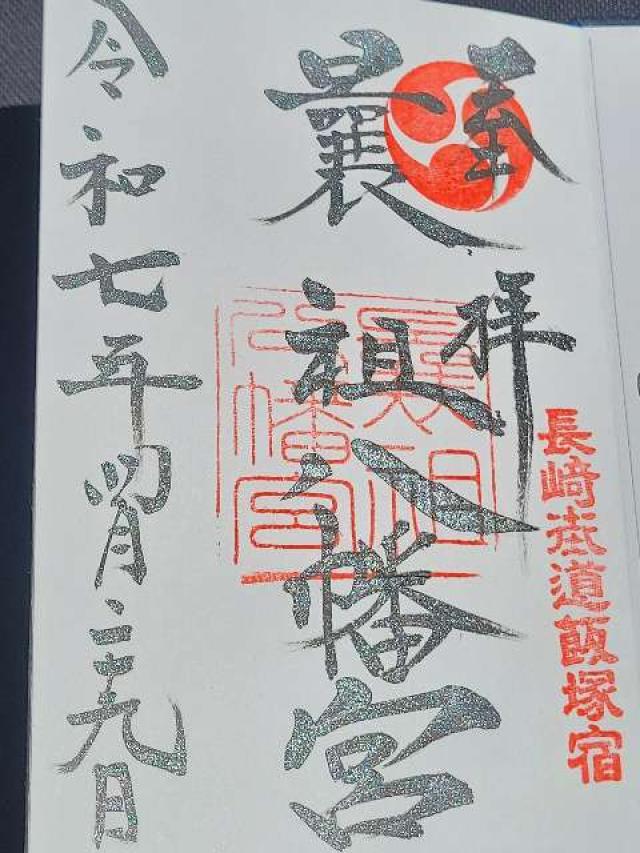 長崎街道飯塚宿
奉拝
曩祖八幡宮
曩祖
八幡宮
令和七年四月二十九日